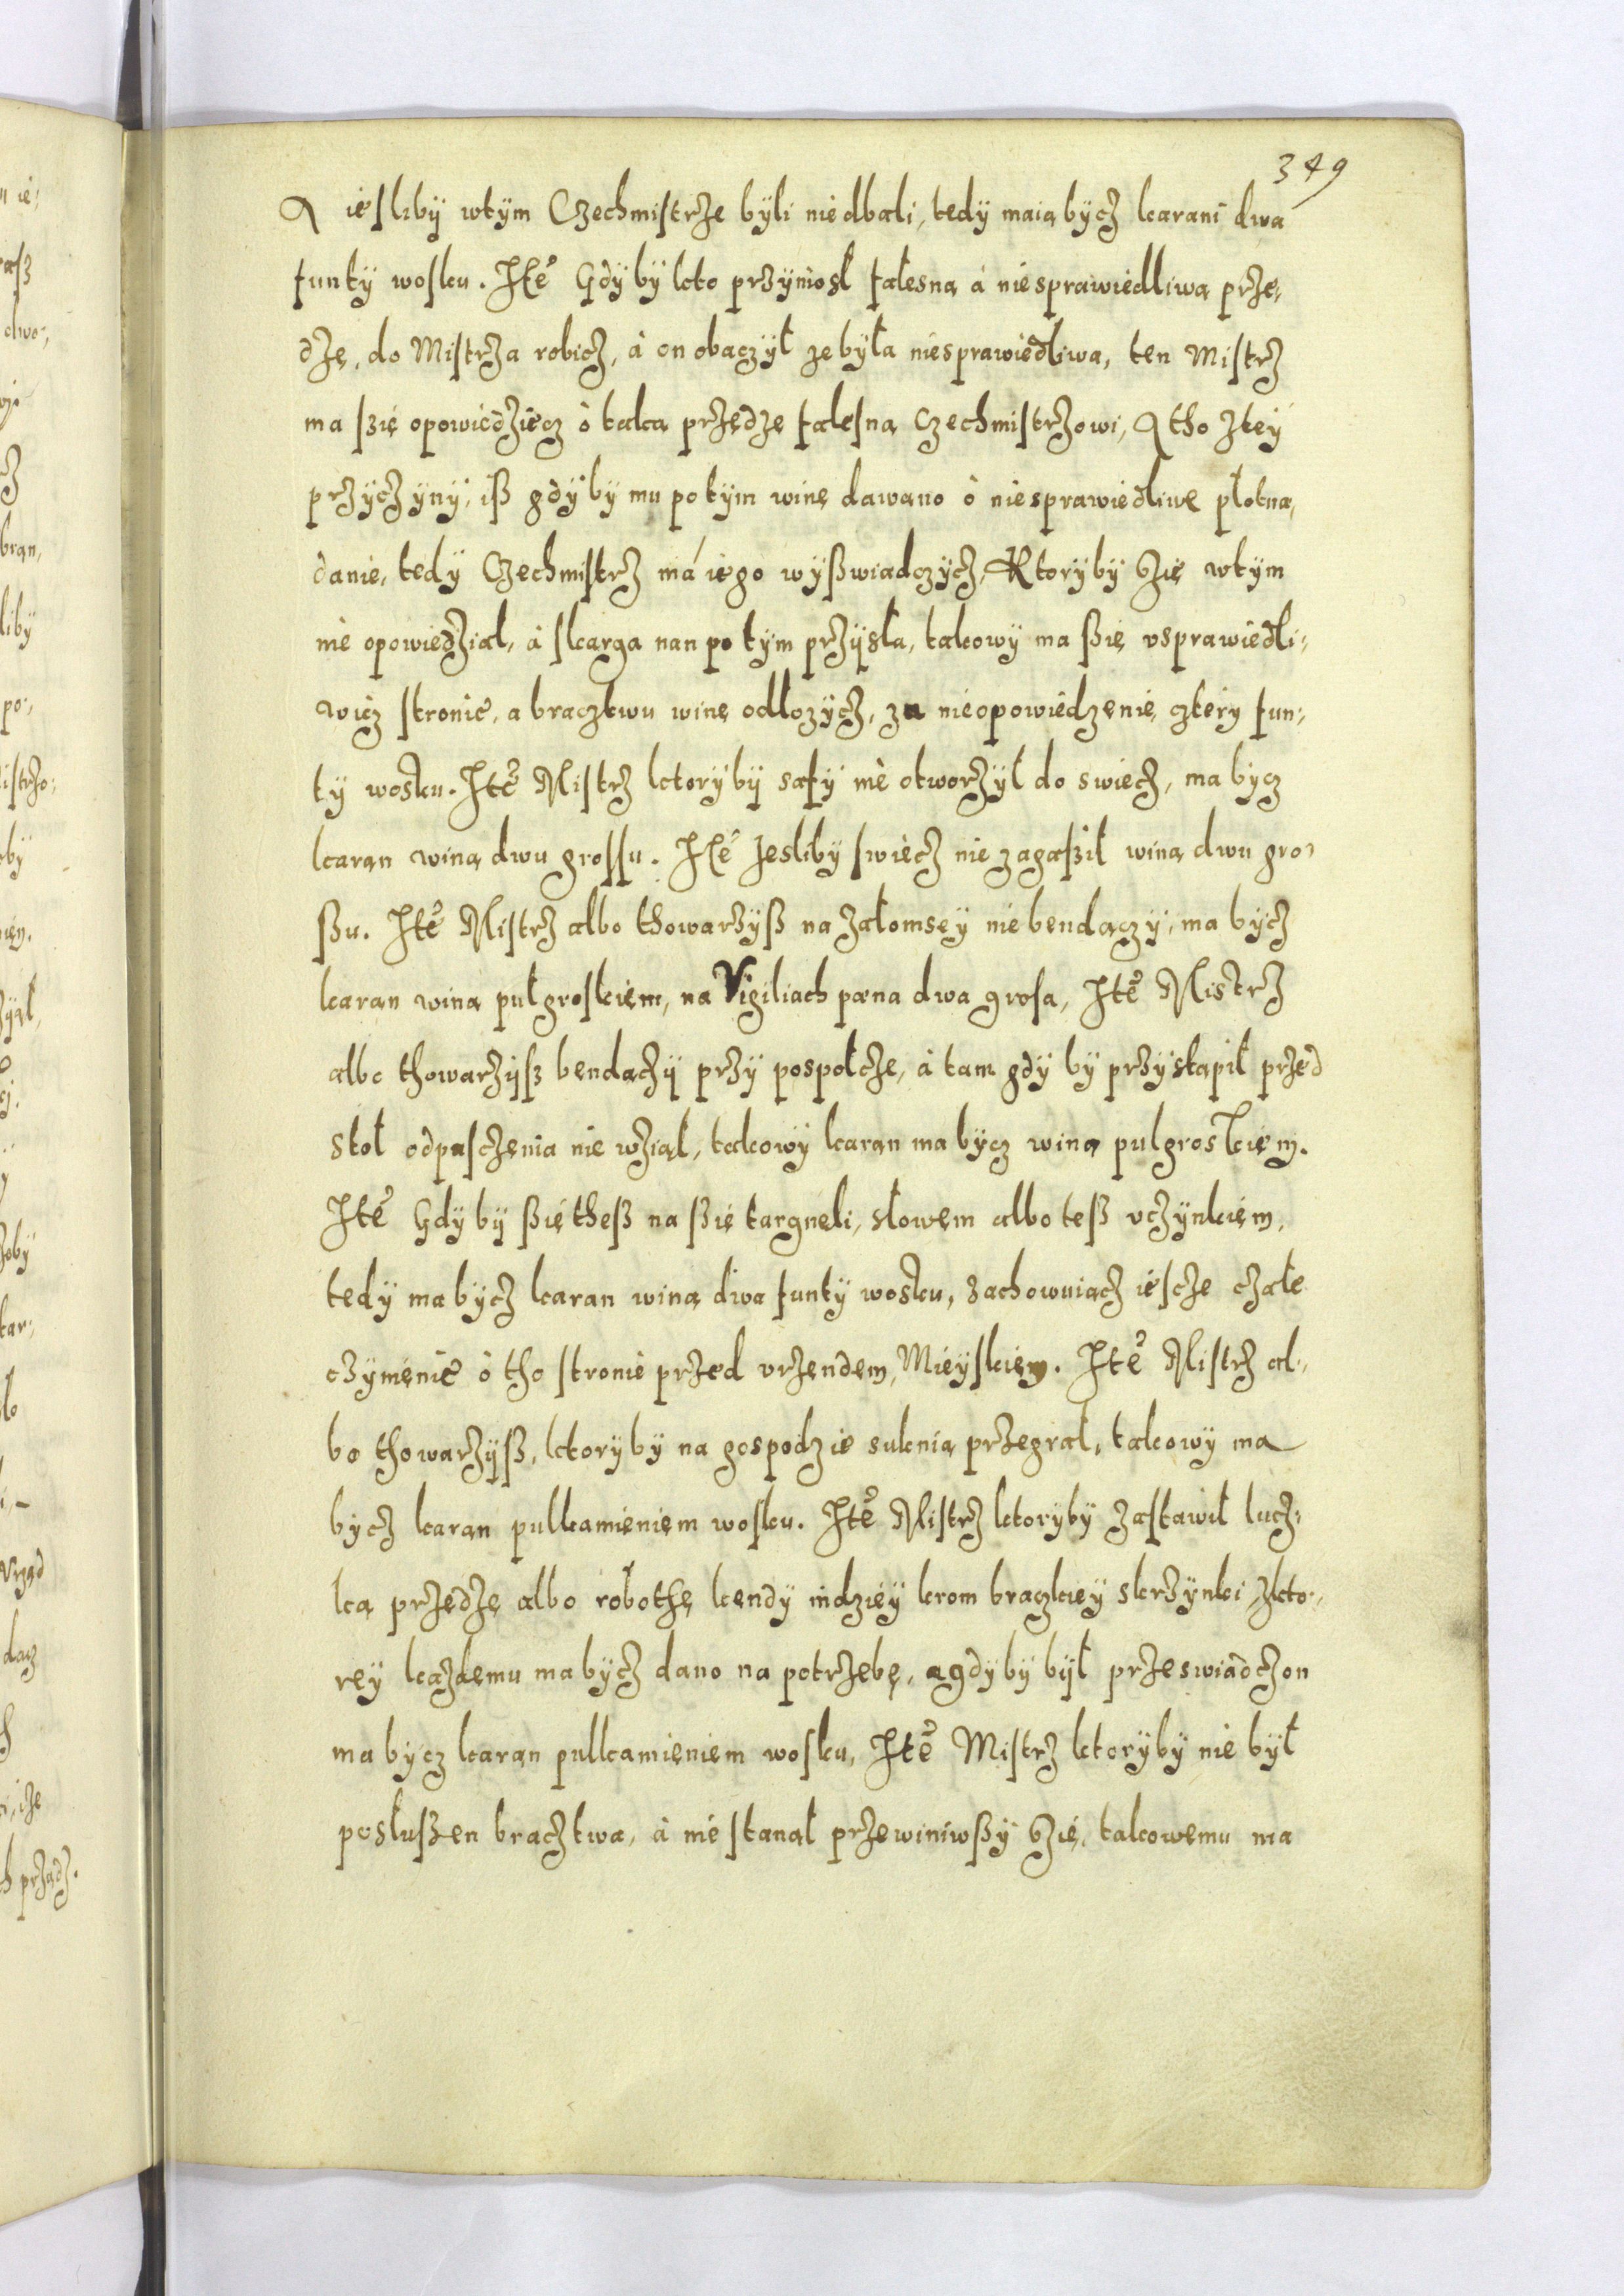 349
A iesliby wtÿm Czechmistrze bÿli niedbali, tedÿ maią bÿcz karani dwa
funtÿ wosku. Itē Gdÿ bÿ kto przÿniosł fałesną à niesprawiedliwą prze,
dzę, do Mistrza robicz, à on obaczÿł ze bÿła niesprawiedliwa, ten Mistrz
ma szię opowiedziecz ò taką przędzę fałesną Czechmistrzowi, A tho ztey
przÿczÿnÿ, iß gdÿ bÿ mu potÿm winę dawano ò niesprawiedliwe płotna,
danie, tedÿ Czechmistrz má iego wÿßwiadczÿcz, Ktorÿ bÿ Szię wtÿm
nie opowiedział, à skarga nan po tÿm przÿsła, takowÿ ma ßię vsprawiedli,
wicz stronie, a bracztwu winę odłozÿcz, za nieopowiedzenie, czterÿ fun,
tÿ wosku. Itē Mistrz ktorÿ bÿ safÿ nie otworzÿł do swiecz, ma bÿcz
karan winą dwu grossu. Itē Jesliby swiecz nie zagasził winą dwu gro,
ßu. Itē Mistrz albo thowarzÿß na załomsey niebendączÿ, ma bÿcz
karan winą pułgroskiem, na Vigiliach pæna dwa grosa, Itē Mistrz
albo thowarzÿsz bendączÿ przÿ pospołcze, à tam gdÿ bÿ przÿstąpił przed
stoł odpusczenia nie wziął, takowÿ karan ma bÿcz winą pułgroskiem.
Itē Gdÿ bÿ ßię theß na ßię targnęli, słowem albo teß vczÿnkiem,
tedÿ ma bÿcz karan winą dwa funtÿ wosku, zachowuiącz iescze czałe
czÿmenie ò tho stronie przed vrzendem, Mieÿskiem. Itē Mistrz al,
bo thowarzÿß, ktorÿ bÿ na gospodzie suknią przegrał, takowÿ ma
bÿcz karan pułkamieniem wosku. Itē Mistrz ktorÿby zastawił ludz,
ką przędzę albo robothę kendÿ indzieÿ krom braczkieÿ skrzÿnki zkto,
reÿ kazdemu ma bÿcz dano na potrzebę, a gdÿ bÿ bÿł przeswiadczon
ma bÿcz karan pułkamieniem wosku, Itē Mistrz ktorÿbÿ nie bÿł
posłußen bracztwa, à nie stanął przewiniwßÿ Szię, takowemu ma